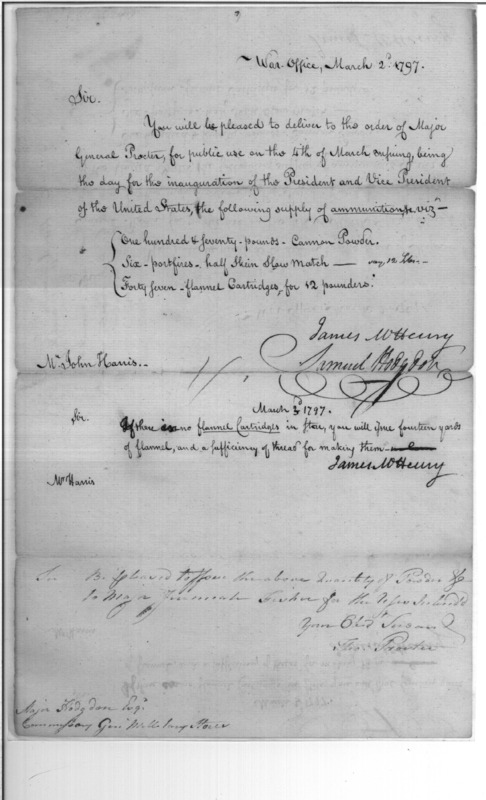 War Office, March 2d. 1797.
Sir.
You will be pleased to deliver to the order of Major
General Procter, for public use on the 4th of March ensuing, being
the day for the inauguration of the President and Vice President
of the United States, the following supply of ammunition, &c. vizt
One hundred & seventy - pounds - Cannon Powder.
Six - portfires - half Skein Slow Match — say 12 lbs. -
Forty Seven - flannel Cartridges, for 12 pounders.
James McHenry
Samuel Hodgdon
Mr. John Harris. -
March 3d 1797.
Sir.
If there is no flannel Cartridges in store, you will issue fourteen yards
of flannel, and a sufficiency of thread for making them
James McHenry
Mr Harris
Sir Be pleased to issue the above Quantity of Powder &c
to Major Jeremiah Fisher for the Use
Your Obd. Servant
Thos. Procter
Major Hodgdon Esqr.
Commissary Genl Military Stores